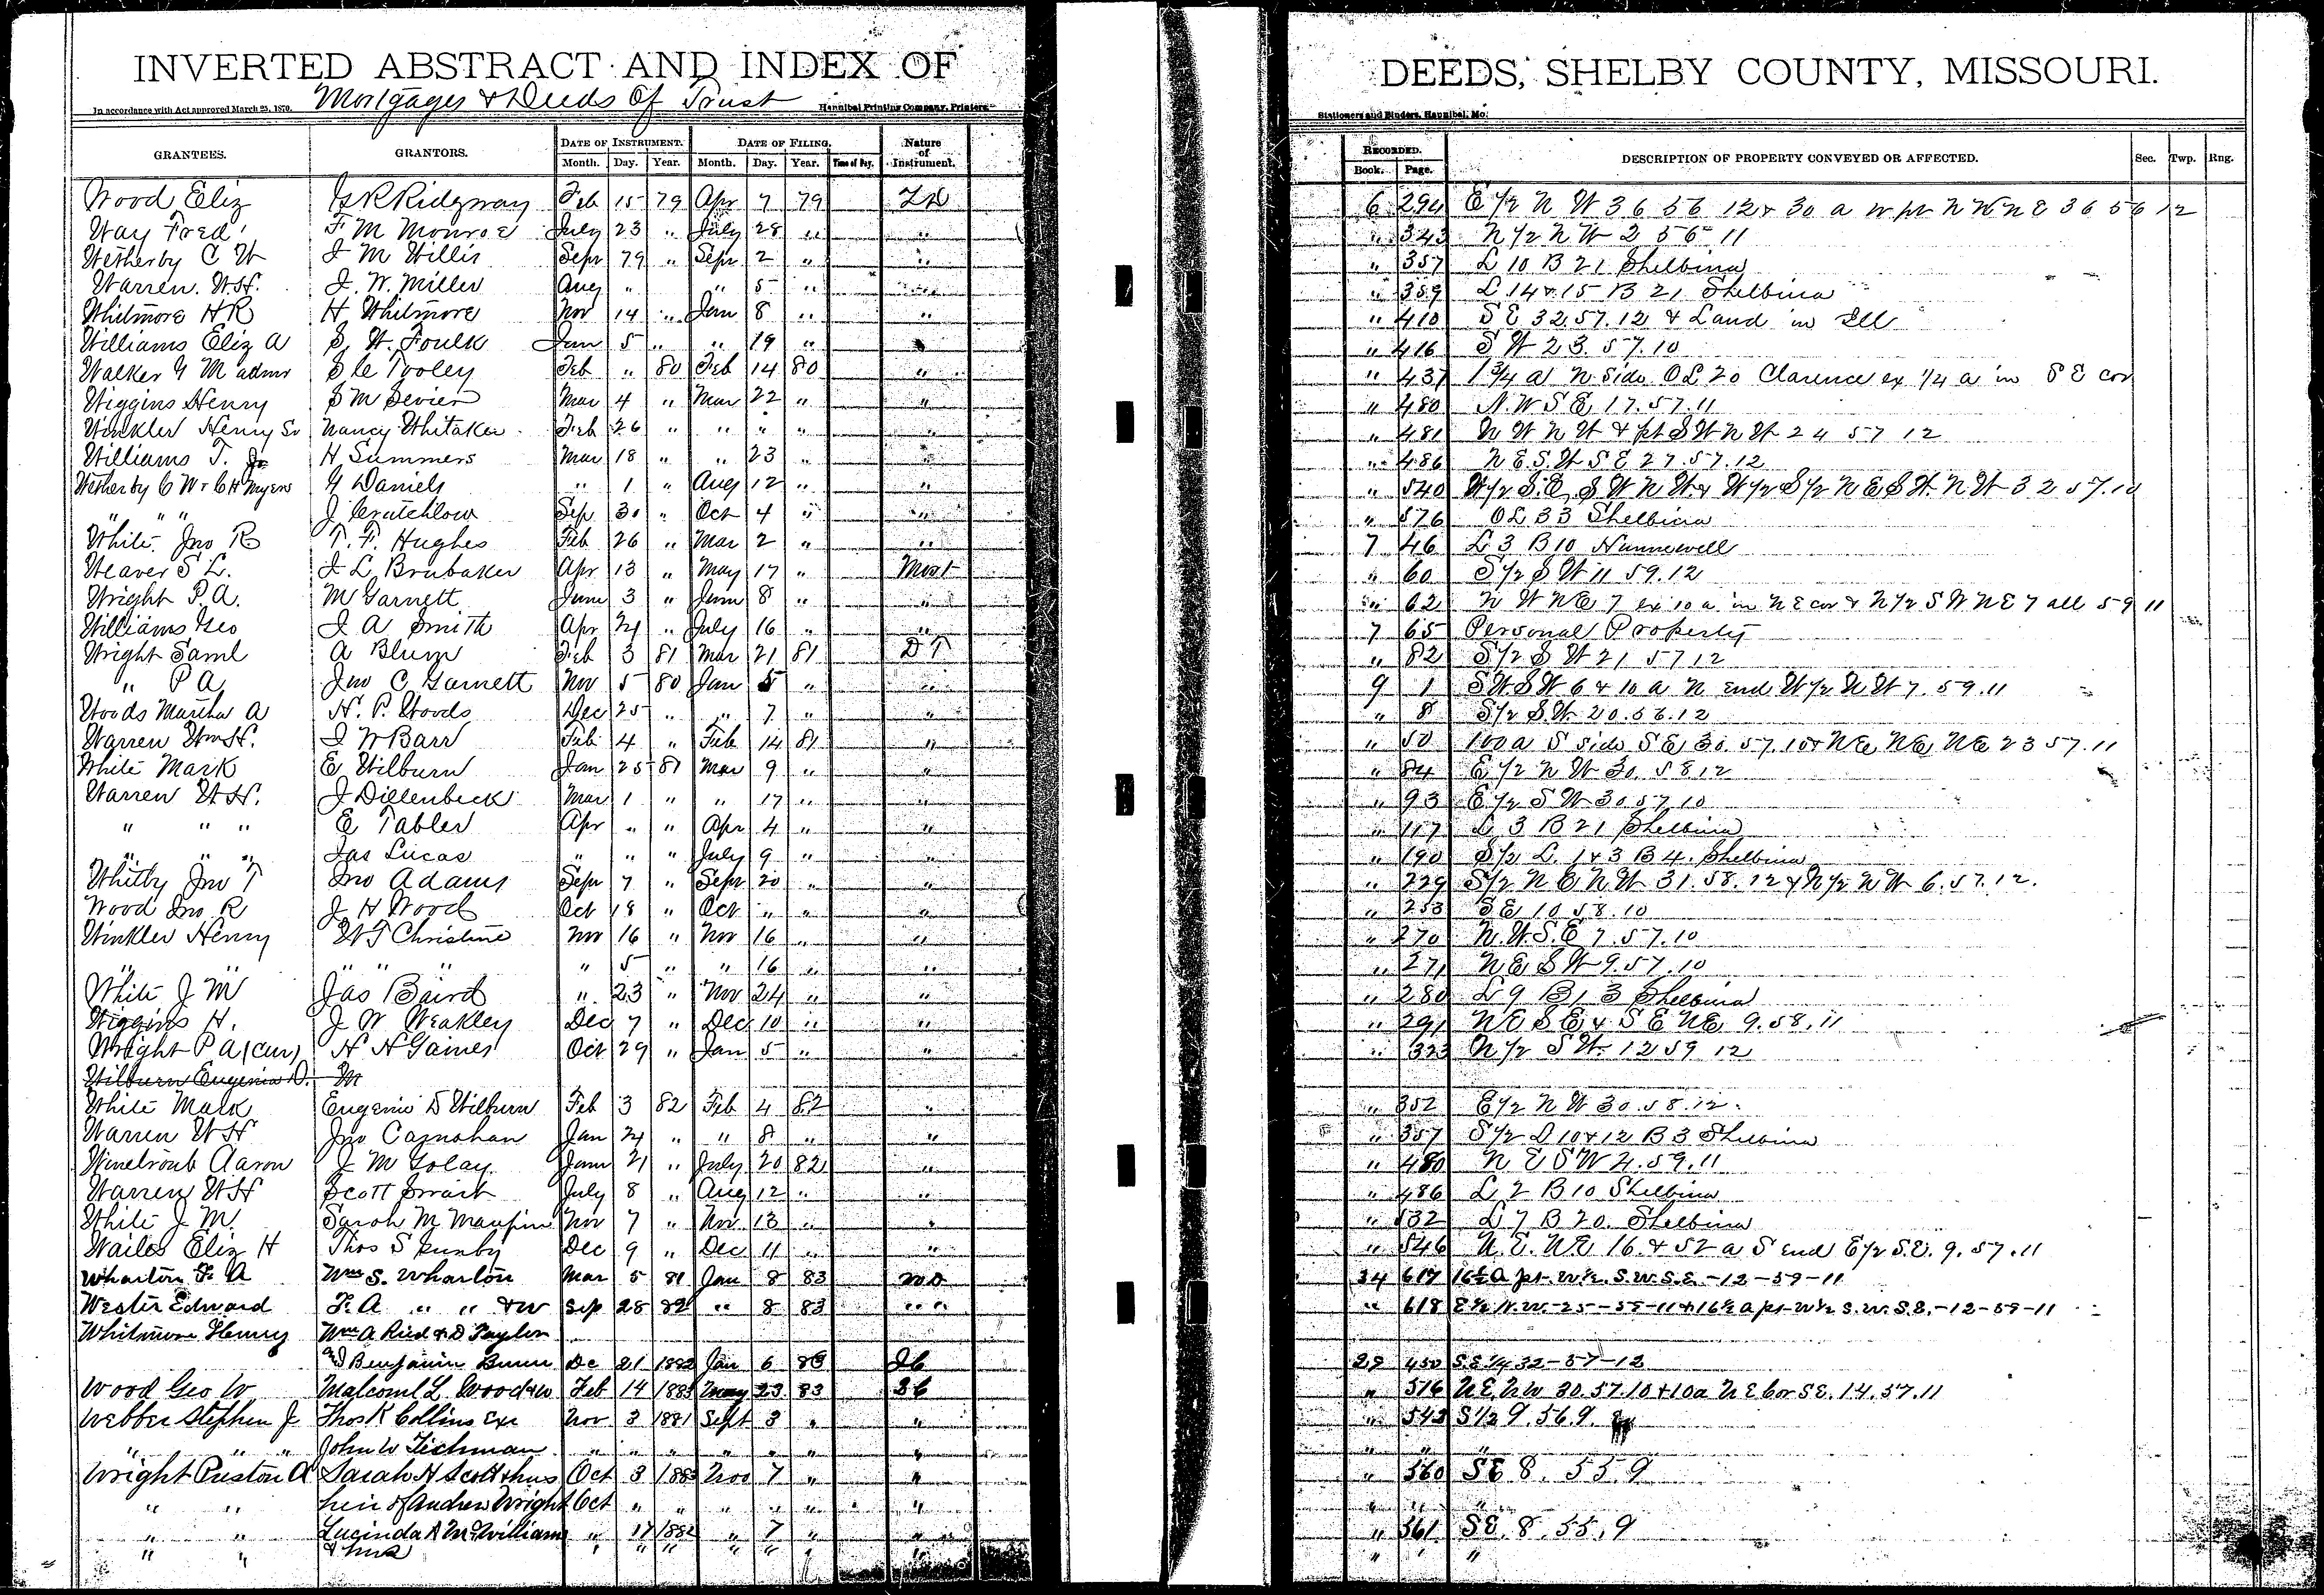 INVERTED ABSTRACT AND INDEX OF DEEDS, SHELBY COUNTY, MISSOURI.
Mortgages & Deeds Of Trust
In accordance with Act approved March 25, 1870. Hannibal Printing Company, Printers. Stationers and Binders, Hannibal, Mo.
GRANTEES. GRANTORS. DATE OF INSTRUMENT. DATE OF FILING. Nature of Instrument. RECORDED. DESCRIPTION OF PROPERTY CONVEYED OR AFFECTED. Sec. Twp. Rng.
Month. Day. Year. Month. Day. Year. Time of Day. Book. Page.
Wood Eliz Ridgway Feb 15 79 Apr 7 79 6 294 E 1/2 N W 36 56 12 & 30 a w pt N W N E 36 56 12
Way Fred F M Monroe July 23 " July 28 " " " 343 N 1/2 N W 2 56 11
Wetherby C W J M Willis Sept 79 " Sept 2 " " " 357 L 10 B 21 Shelbina
Warren W.H. J. W. Miller Aug " " 5 " " " 359 L 14 & 15 B 21 Shelbina
Whitmore H R H Whitmore Nov 14 " Jan 8 " " " 410 S E 32.57.12 & Land in Ill
Williams Eliz A S. W. Foulk Jan 5 " " 19 " " " 416 S W 23.57.10
Walker G M admr S le Tooley Feb " 80 Feb 14 80 " " 437 1 3/4 a N. side OL 20 Clarence ex 1/4 a in S E cor
Wiggins Henry S M Sevier Mar 4 " Mar 22 " " " 480 N.W S E 17.57.11
Winkler Henry Sr Nancy Whitaker Feb 26 " " " " " " 481 N W N W & pt S W N W 24 57 12
Williams T. Jr H Summers Mar 18 " " 23 " " " 486 N E. S. W S E 27.57.12
Wetherby C W & C H Myers G Daniels " 1 " Aug 12 " " " 540 W 1/2 S.E, S W N W & W 1/2 S 1/2 N E S W. N W 32 57.10
" " " J Crutchlow Sep 30 " Oct 4 " " " 576 OL 33 Shelbina
White Jno R T. F. Hughes Feb 26 " Mar 2 " " 7 46 L 3 B 10 Hunnewell
Weaver S L. J L Brubaker Apr 13 " May 17 " Mort " 60 S 1/2 S W 11 59.12
Wright P A. M Garnett June 3 " June 8 " " " 62 N W N E 7 ex 10 a in N E cor & N 1/2 S W N E 7 all 59 11
Williams Geo J A Smith Apr 21 " July 16 " " 7 65 Personal Property
Wright Saml A Blum Feb 3 81 Mar 21 81 D T " 82 S 1/2 S W 21 57 12
" P A Jno C Garnett Nov 5 80 Jan 5 " " 9 1 S W S W 6 & 10 a N end W 1/2 N W 7.59.11
Woods Martha A H. P. Woods Dec 25 " " 7 " " " 8 S 1/2 S.W. 20.56.12
Warren Wm H. J W Barr Feb 4 " Feb 14 81 " " 50 100 a S side S E 30.57.10 & N E N E N E 23 57.11
White Mark E Wilburn Jan 25 81 Mar 9 " " " 84 E 1/2 N W 30 58 12
Warren W H. J Dillenbeck Mar 1 " " 17 " " " 93 E 1/2 S W 30 57 10
" " " E Tabler Apr " " Apr 4 " " " 117 L 3 B 21 Shelbina
" " " Jas Lucas " " " July 9 " " " 190 S 1/2 L. 1 & 3 B 4. Shelbina
Whitby Jno T Jno Adams Sept 7 " Sept 20 " " " 229 S 1/2 N E N W 31.58.12 & N 1/2 N W 6.57.12.
Wood Jno R J H Wood Oct 18 " Oct " " " " 253 S E 10 58.10
Winkler Henry W T Christine Nov 16 " Nov 16 " " " 270 N. W. S. E 7.57.10
" " " " " " 5 " " 16 " " " 271 N E S W 9.57.10
White J M Jas Baird " 23 " Nov 24 " " " 280 L 9 B 13 Shelbina
Wiggins H. J W Weakley Dec 7 " Dec 10 " " " 291 N E S E & S E N E 9.58.11
Wright P A (Cur) H H Gaines Oct 29 " Jan 5 " " " 323 N 1/2 S W. 12 59 12
Wilburn Eugenia D. M
White Mark Eugenia D Wilburn Feb 3 82 Feb 4 82 " " 352 E 1/2 N W 30.58.12.
Warren W H Jno Carnahan Jan 21 " " 8 " " " 357 S 1/2 L 10 & 12 B 3 Shelbina
Winetroub Aaron J M Golay June 21 " July 20 82 " " 480 N E S W 4.59.11
Warren W H Scott Smart July 8 " Aug 12 " " " 486 L 2 B 10 Shelbina
White J M. Sarah M Maupin Nov 7 " Nov 13 " " " 532 L 7 B 20. Shelbina
Wailes Eliz H Thos S Dec 9 " Dec 11 " " " 546 N. E. N E 16. & 52 a S end E 1/2 S.E. 9.57.11
Wharton F. A Wm S. Wharton Mar 5 81 Jan 8 83 34 617 16 1/2 a pt. W 1/2. S.W. S.E. -12-59-11
Wester Edward F. A " " & W Sep 28 82 " 8 83 " " " 618 E 1/2 N.W.-25-58-11 & 16 1/2 a pt W 1/2 S.W. S.E.-12-59-11
Whitmore Henry Wm A Ried & D Taylor
& Benjamin Dec 21 1882 Jan 6 83 28 450 S.E. 1/4 32-57-12
Wood Geo W Malcoml L Wood & W Feb 14 1883 May 23 83 " 516 N E. N W 30.57.10 & 10a N E cor S E. 14.57.11
Webber Stephen J Thos K Collins Exr Nov 3 1881 Sept 3 " " " 543 S 1/2 9.56.9.
" " " John W Tichman " " " " " " " " " "
Wright Preston A Sarah H Scott & hus Oct 3 1883 Nov 7 " " " 560 S E 8.55.9
" " heir of Andrew Wright Oct " " " " " " " " "
" " Lucinda A McWilliams " 17 1882 " 7 " " " 561 S E. 8.55.9
" " & hus " " " " " " " " " "